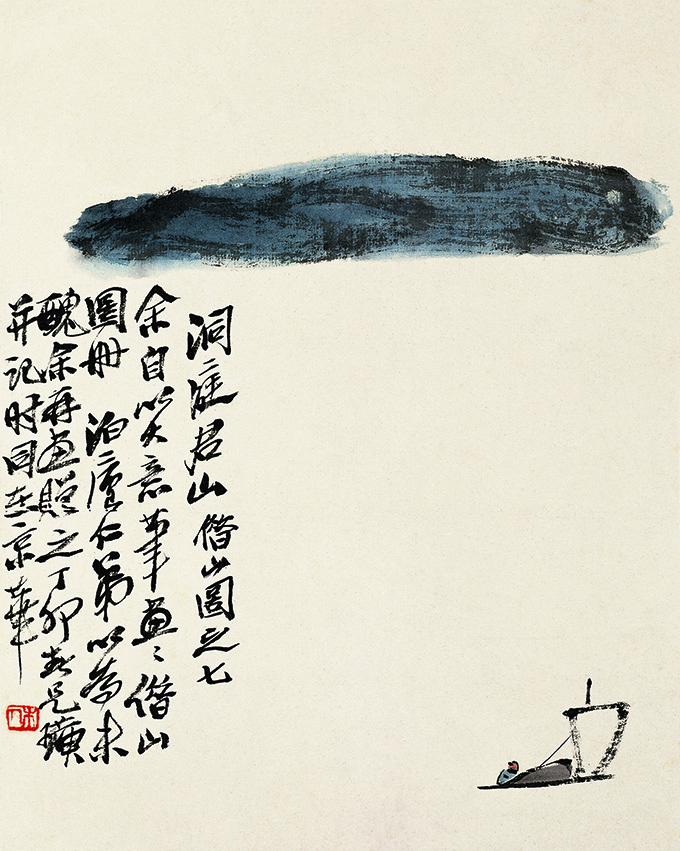 洞庭君山 借山圖之七
余自以大意筆畫々借山
圖冊 泊廬仁弟以為未
醜余再畫贈之丁卯春兄璜
并記时同在京華
木人